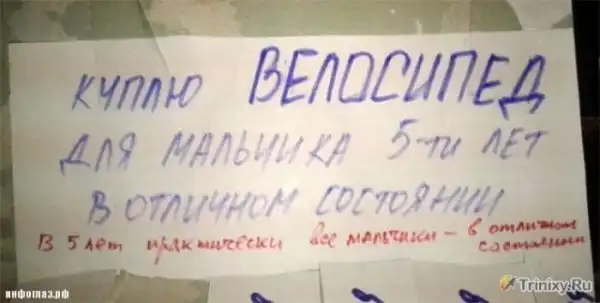 КУПЛЮ ВЕЛОСИПЕД
ДЛЯ МАЛЬЧИКА 5-ТИ ЛЕТ
В ОТЛИЧНОМ СОСТОЯНИИ
В 5 лет практически все мальчики – в отличном
состоянии
инфоглаз.рф
Trinixy.Ru